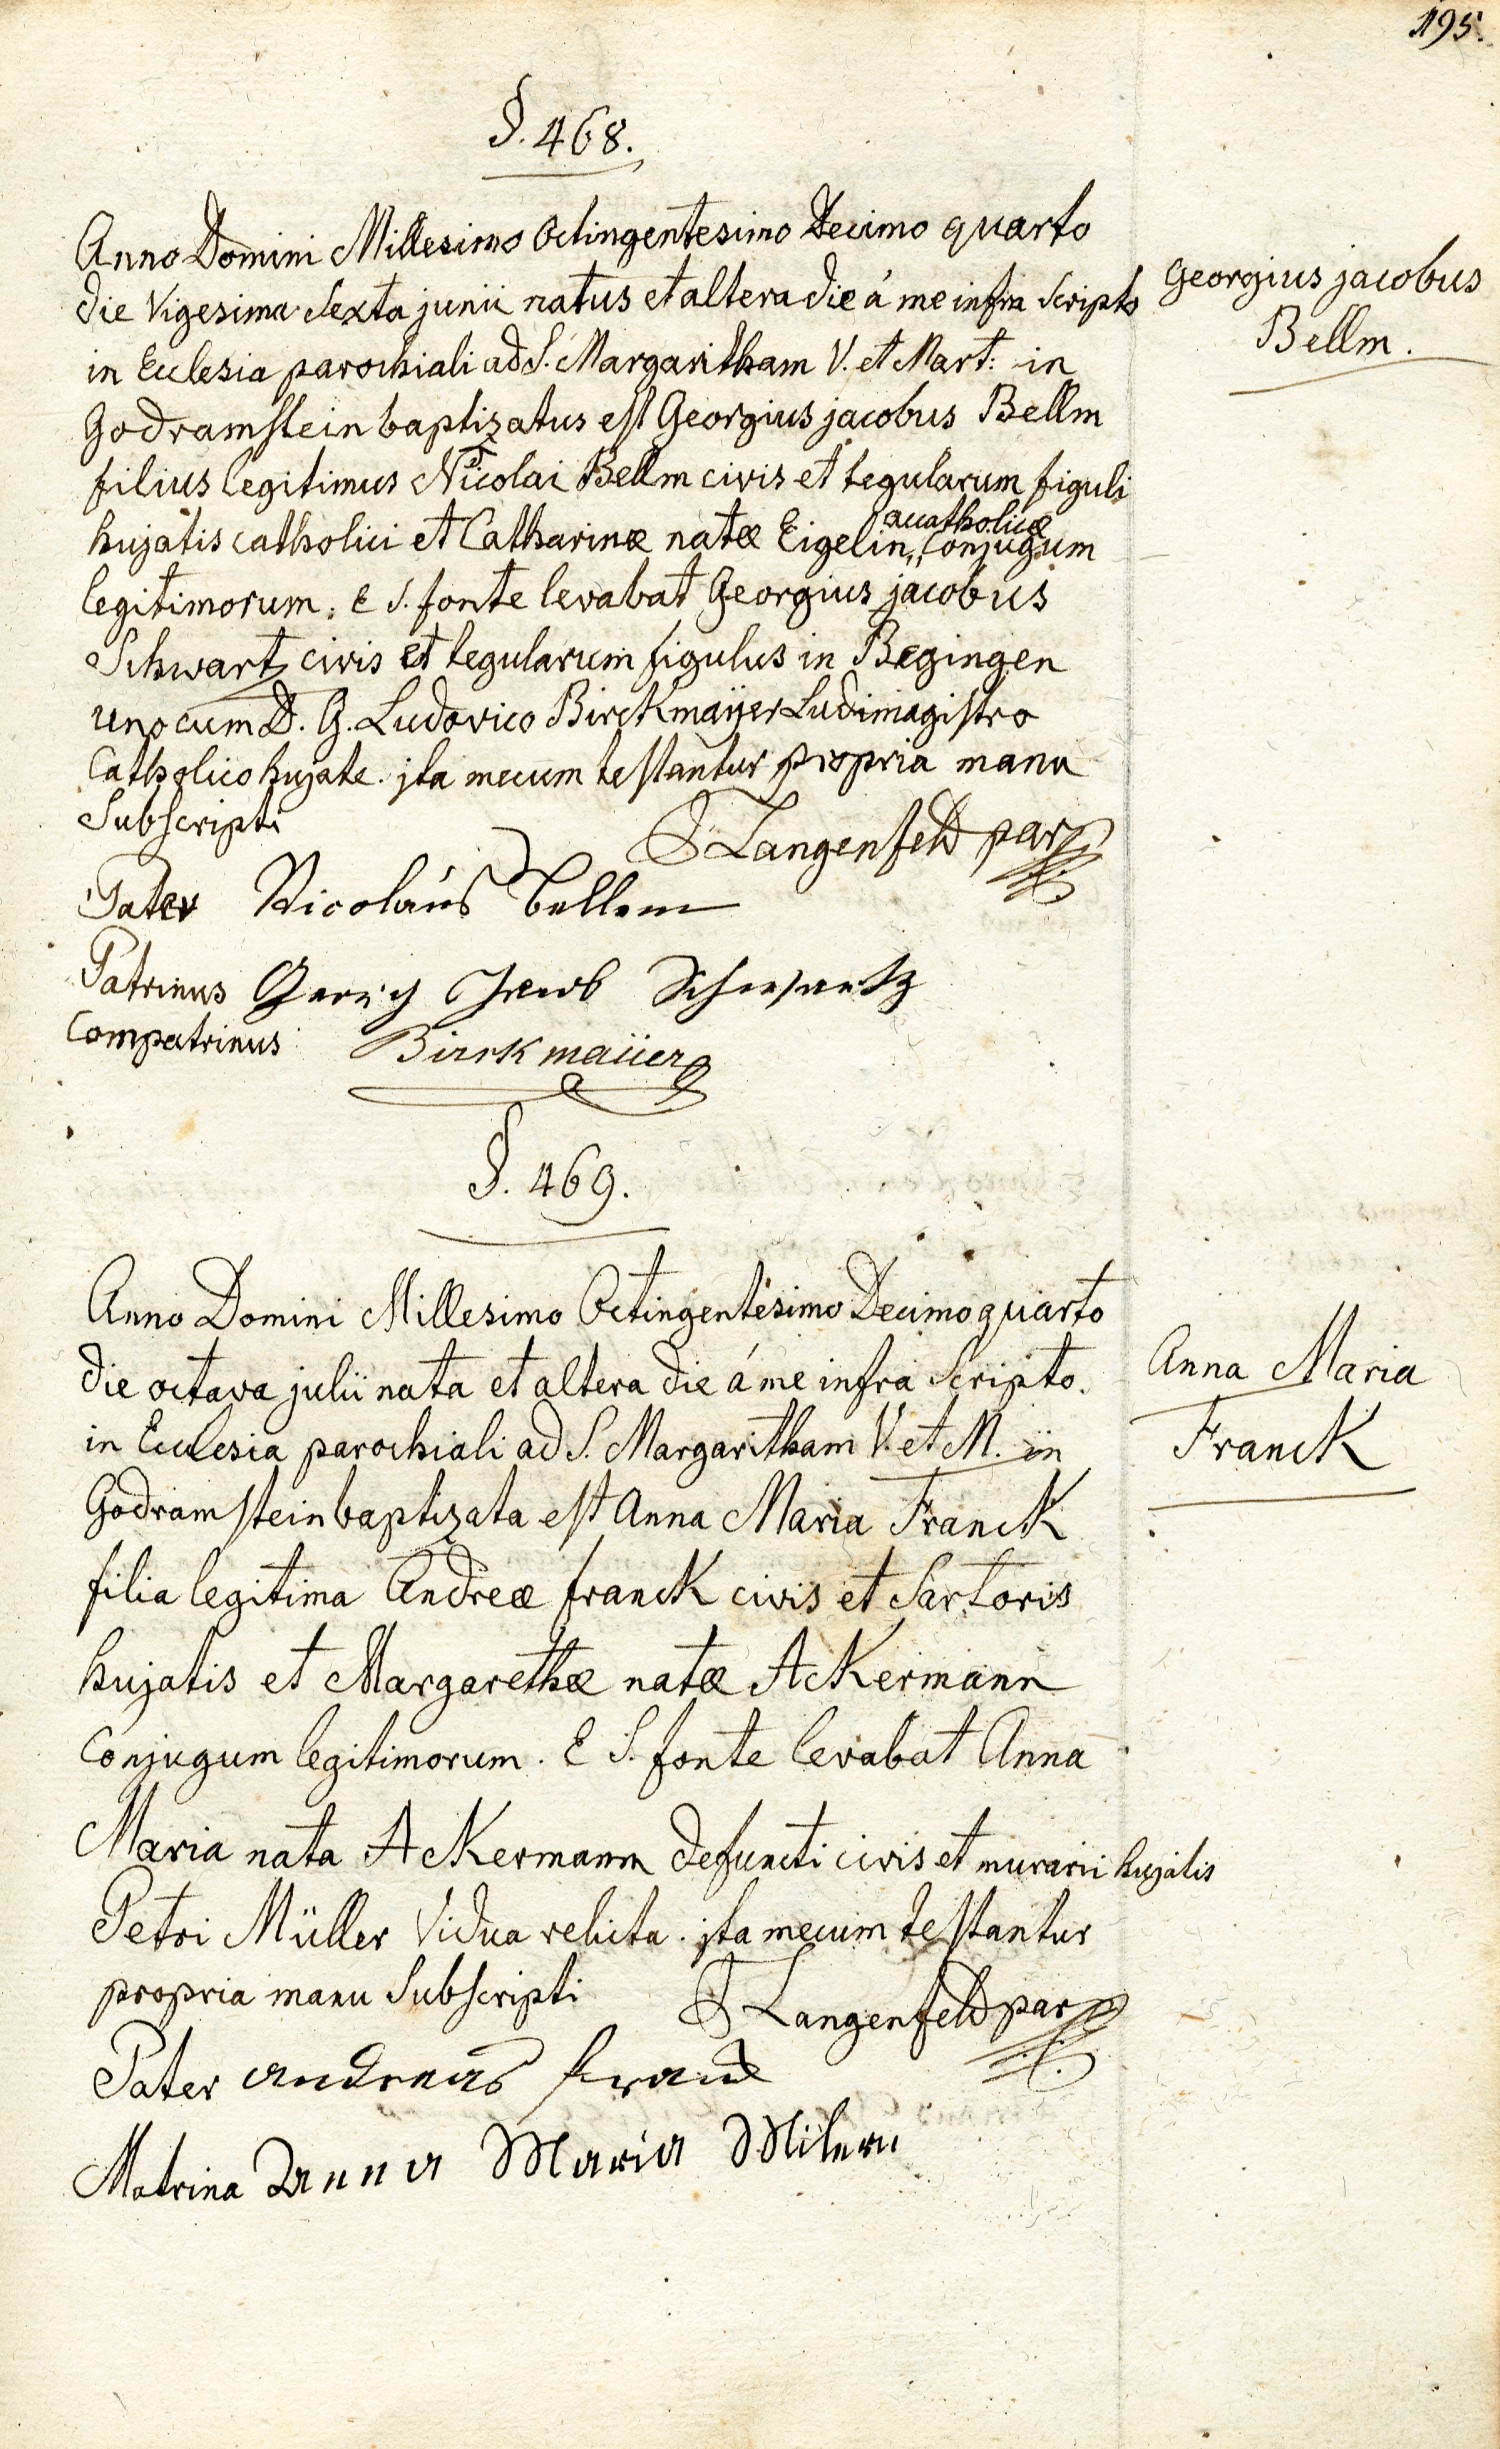 195.
§. 468.
Anno Domini Millesimo Octingentesimo Decimo quarto
die Vigesima Sexta junii natus et altera die á me infra Scripto
Georgius jacobus
Bellm.
in Ecclesia parochiali ad S. Margaritham V. et Mart: in
Godramstein baptizatus est Georgius jacobus Bellm
filius legitimus Nicolai Bellm civis et tegularum figuli
hujatis catholici et Catharinæ natæ Eigelin acatholicæ Conjugum
legitimorum. E S. fonte levabat Georgius jacobus
Schwartz civis et tegularum figulus in Begingen
uno cum D. G. Ludovico Birckmaÿer Ludimagistro
Catholico hujate. jta mecum testantur propria manu
Subscripti
F Langenfeld par
Pater Nicolaus Bellem
Patrinus Georg Jacob Schwartz
Compatrinus Birckmaiier
§. 469.
Anno Domini Millesimo Octingentesimo Decimo quarto
die octava julii nata et altera die á me infra Scripto.
Anna Maria
Franck
in Ecclesia parochiali ad S. Margaritham V. et M. in
Godramstein baptizata est Anna Maria Franck
filia legitima Andreæ franck civis et Sartoris
hujatis et Margarethæ natæ Ackermann
Conjugum legitimorum. E S. fonte levabat Anna
Maria nata Ackermann defuncti civis et murarii hujatis
Petri Müller Vidua relicta. jta mecum testantur
propria manu Subscripti
F Langenfeld par
Pater andreas franck
Matrina Anna Maria Milern